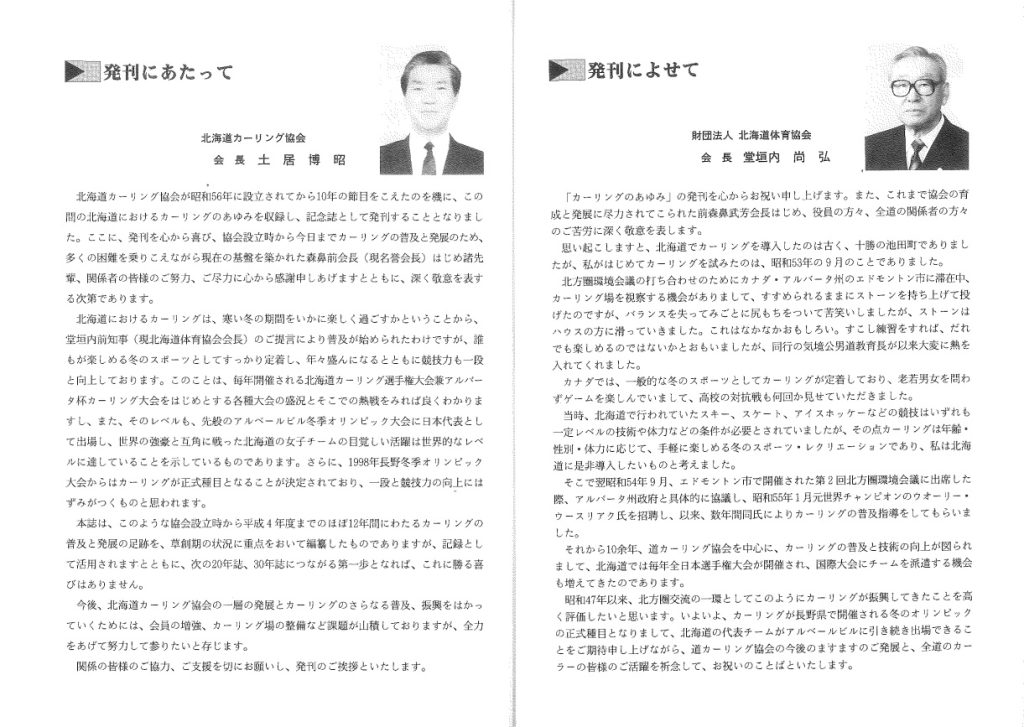 発刊にあたって
北海道カーリング協会
会 長 土 居 博 昭
北海道カーリング協会が昭和56年に設立されてから10年の節目をこえたのを機に、この
間の北海道におけるカーリングのあゆみを収録し、記念誌として発刊することとなりまし
た。ここに、発刊を心から喜び、協会設立時から今日までカーリングの普及と発展のため、
多くの困難を乗りこえながら現在の基盤を築かれた森鼻前会長（現名誉会長）はじめ諸先
輩、関係者の皆様のご努力、ご尽力に心から感謝申しあげますとともに、深く敬意を表す
る次第であります。
北海道におけるカーリングは、寒い冬の期間をいかに楽しく過ごすかということから、
堂垣内前知事（現北海道体育協会会長）のご提言により普及が始められたわけですが、誰
もが楽しめる冬のスポーツとしてすっかり定着し、年々盛んになるとともに競技力も一段
と向上しております。このことは、毎年開催される北海道カーリング選手権大会兼アルバー
タ杯カーリング大会をはじめとする各種大会の盛況とそこでの熱戦をみれば良くわかりま
すし、また、そのレベルも、先般のアルベールビル冬季オリンピック大会に日本代表として
出場し、世界の強豪と互角に戦った北海道の女子チームの目覚しい活躍は世界的なレベ
ルに達していることを示しているものであります。さらに、1998年長野冬季オリンピック
大会からはカーリングが正式種目となることが決定されており、一段と競技力の向上には
ずみがつくものと思われます。
本誌は、このような協会設立時から平成４年度までのほぼ12年間にわたるカーリングの
普及と発展の足跡を、草創期の状況に重点をおいて編纂したものでありますが、記録とし
て活用されますとともに、次の20年誌、30年誌につながる第一歩となれば、これに勝る喜
びはありません。
今後、北海道カーリング協会の一層の発展とカーリングのさらなる普及、振興をはかっ
ていくためには、会員の増強、カーリング場の整備など課題が山積しておりますが、全力
をあげて努力して参りたいと存じます。
関係の皆様のご協力、ご支援を切にお願いし、発刊のご挨拶といたします。
発刊によせて
財団法人 北海道体育協会
会 長 堂垣内 尚 弘
「カーリングのあゆみ」の発刊を心からお祝い申し上げます。また、これまで協会の育
成と発展に尽力されてこられた前森鼻武芳会長はじめ、役員の方々、全道の関係者の方々
のご苦労に深く敬意を表します。
思い起こしますと、北海道でカーリングを導入したのは古く、十勝の池田町でありまし
たが、私がはじめてカーリングを試みたのは、昭和53年の９月のことでありました。
北方圏環境会議の打ち合わせのためにカナダ・アルバータ州のエドモントン市に滞在中、
カーリング場を視察する機会がありまして、すすめられるままにストーンを持ち上げて投
げたのですが、バランスを失ってみごとに尻もちをついて苦笑いしましたが、ストーンは
ハウスの方に滑っていきました。これはなかなかおもしろい。すこし練習をすれば、だれ
でも楽しめるのではないかとおもいましたが、同行の気境公男道教育長が以来大変に熱を
入れてくれました。
カナダでは、一般的な冬のスポーツとしてカーリングが定着しており、老若男女を問わ
ずゲームを楽しんでいまして、高校の対抗戦も何回か見せていただきました。
当時、北海道で行われていたスキー、スケート、アイスホッケーなどの競技はいずれも
一定レベルの技術や体力などの条件が必要とされていましたが、その点カーリングは年齢・
性別・体力に応じて、手軽に楽しめる冬のスポーツ・レクリエーションであり、私は北海
道に是非導入したいものと考えました。
そこで翌昭和54年９月、エドモントン市で開催された第２回北方圏環境会議に出席した
際、アルバータ州政府と具体的に協議し、昭和55年１月元世界チャンピオンのウオーリー・
ウースリアク氏を招聘し、以来、数年間同氏によりカーリングの普及指導をしてもらいま
した。
それから10余年、道カーリング協会を中心に、カーリングの普及と技術の向上が図られ
まして、北海道では毎年全日本選手権大会が開催され、国際大会にチームを派遣する機会
も増えてきたのであります。
昭和47年以来、北方圏交流の一環としてこのようにカーリングが振興してきたことを高
く評価したいと思います。いよいよ、カーリングが長野県で開催される冬のオリンピック
の正式種目となりまして、北海道の代表チームがアルベールビルに引き続き出場できるこ
とをご期待申し上げながら、道カーリング協会の今後のますますのご発展と、全道のカー
ラーの皆様のご活躍を祈念して、お祝いのことばといたします。